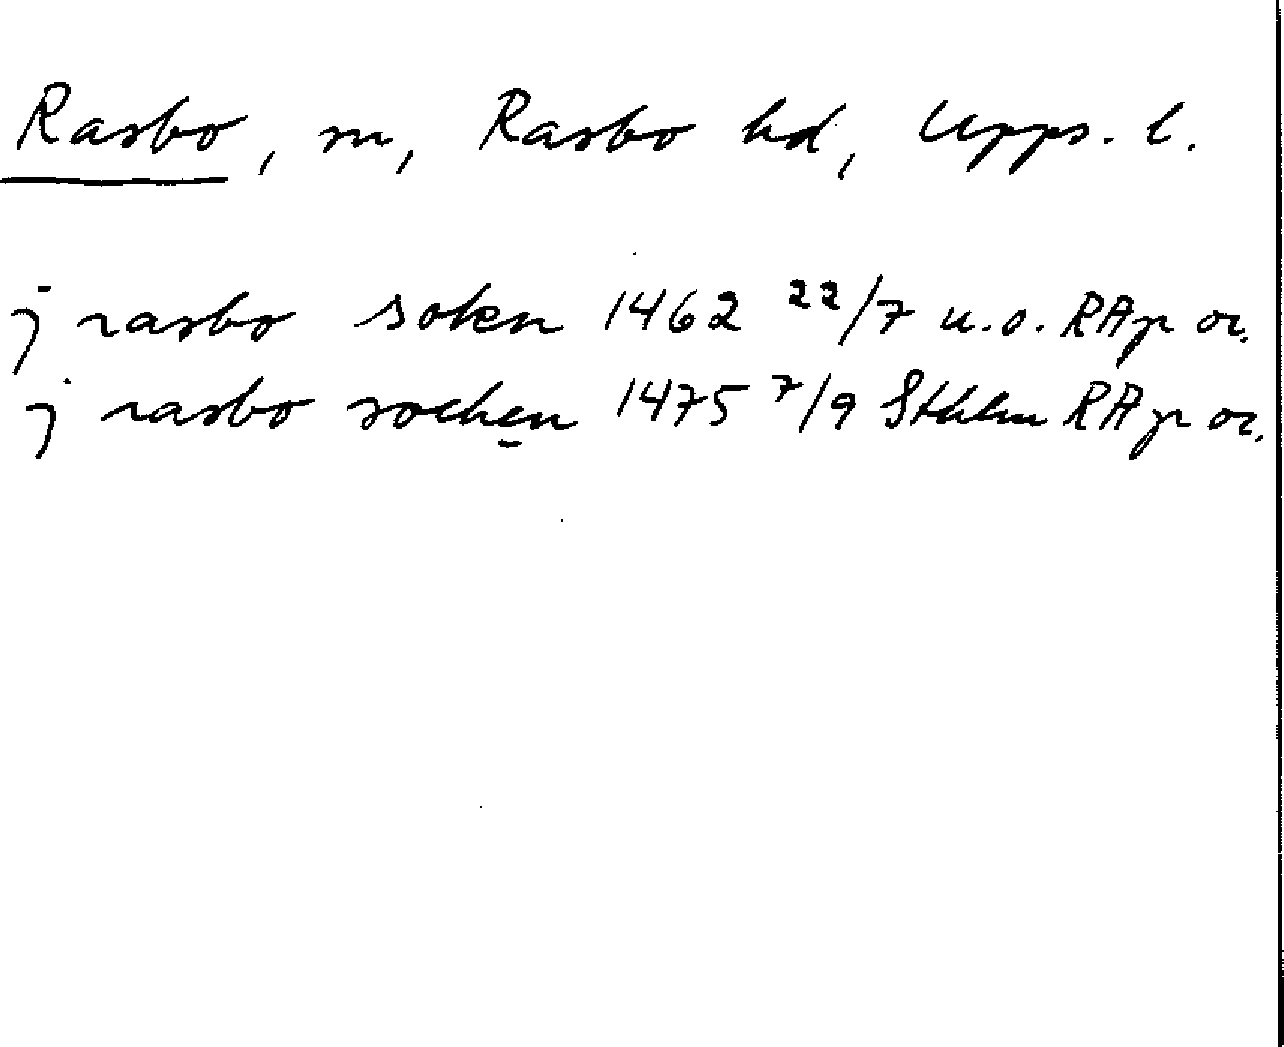 Rasbo, sn, Rasbo hd, Upps. l.
j rasbo soken 1462 22/7 u.o. RAp or.
j rasbo sochen 1475 7/9 Sthlm RAp or.